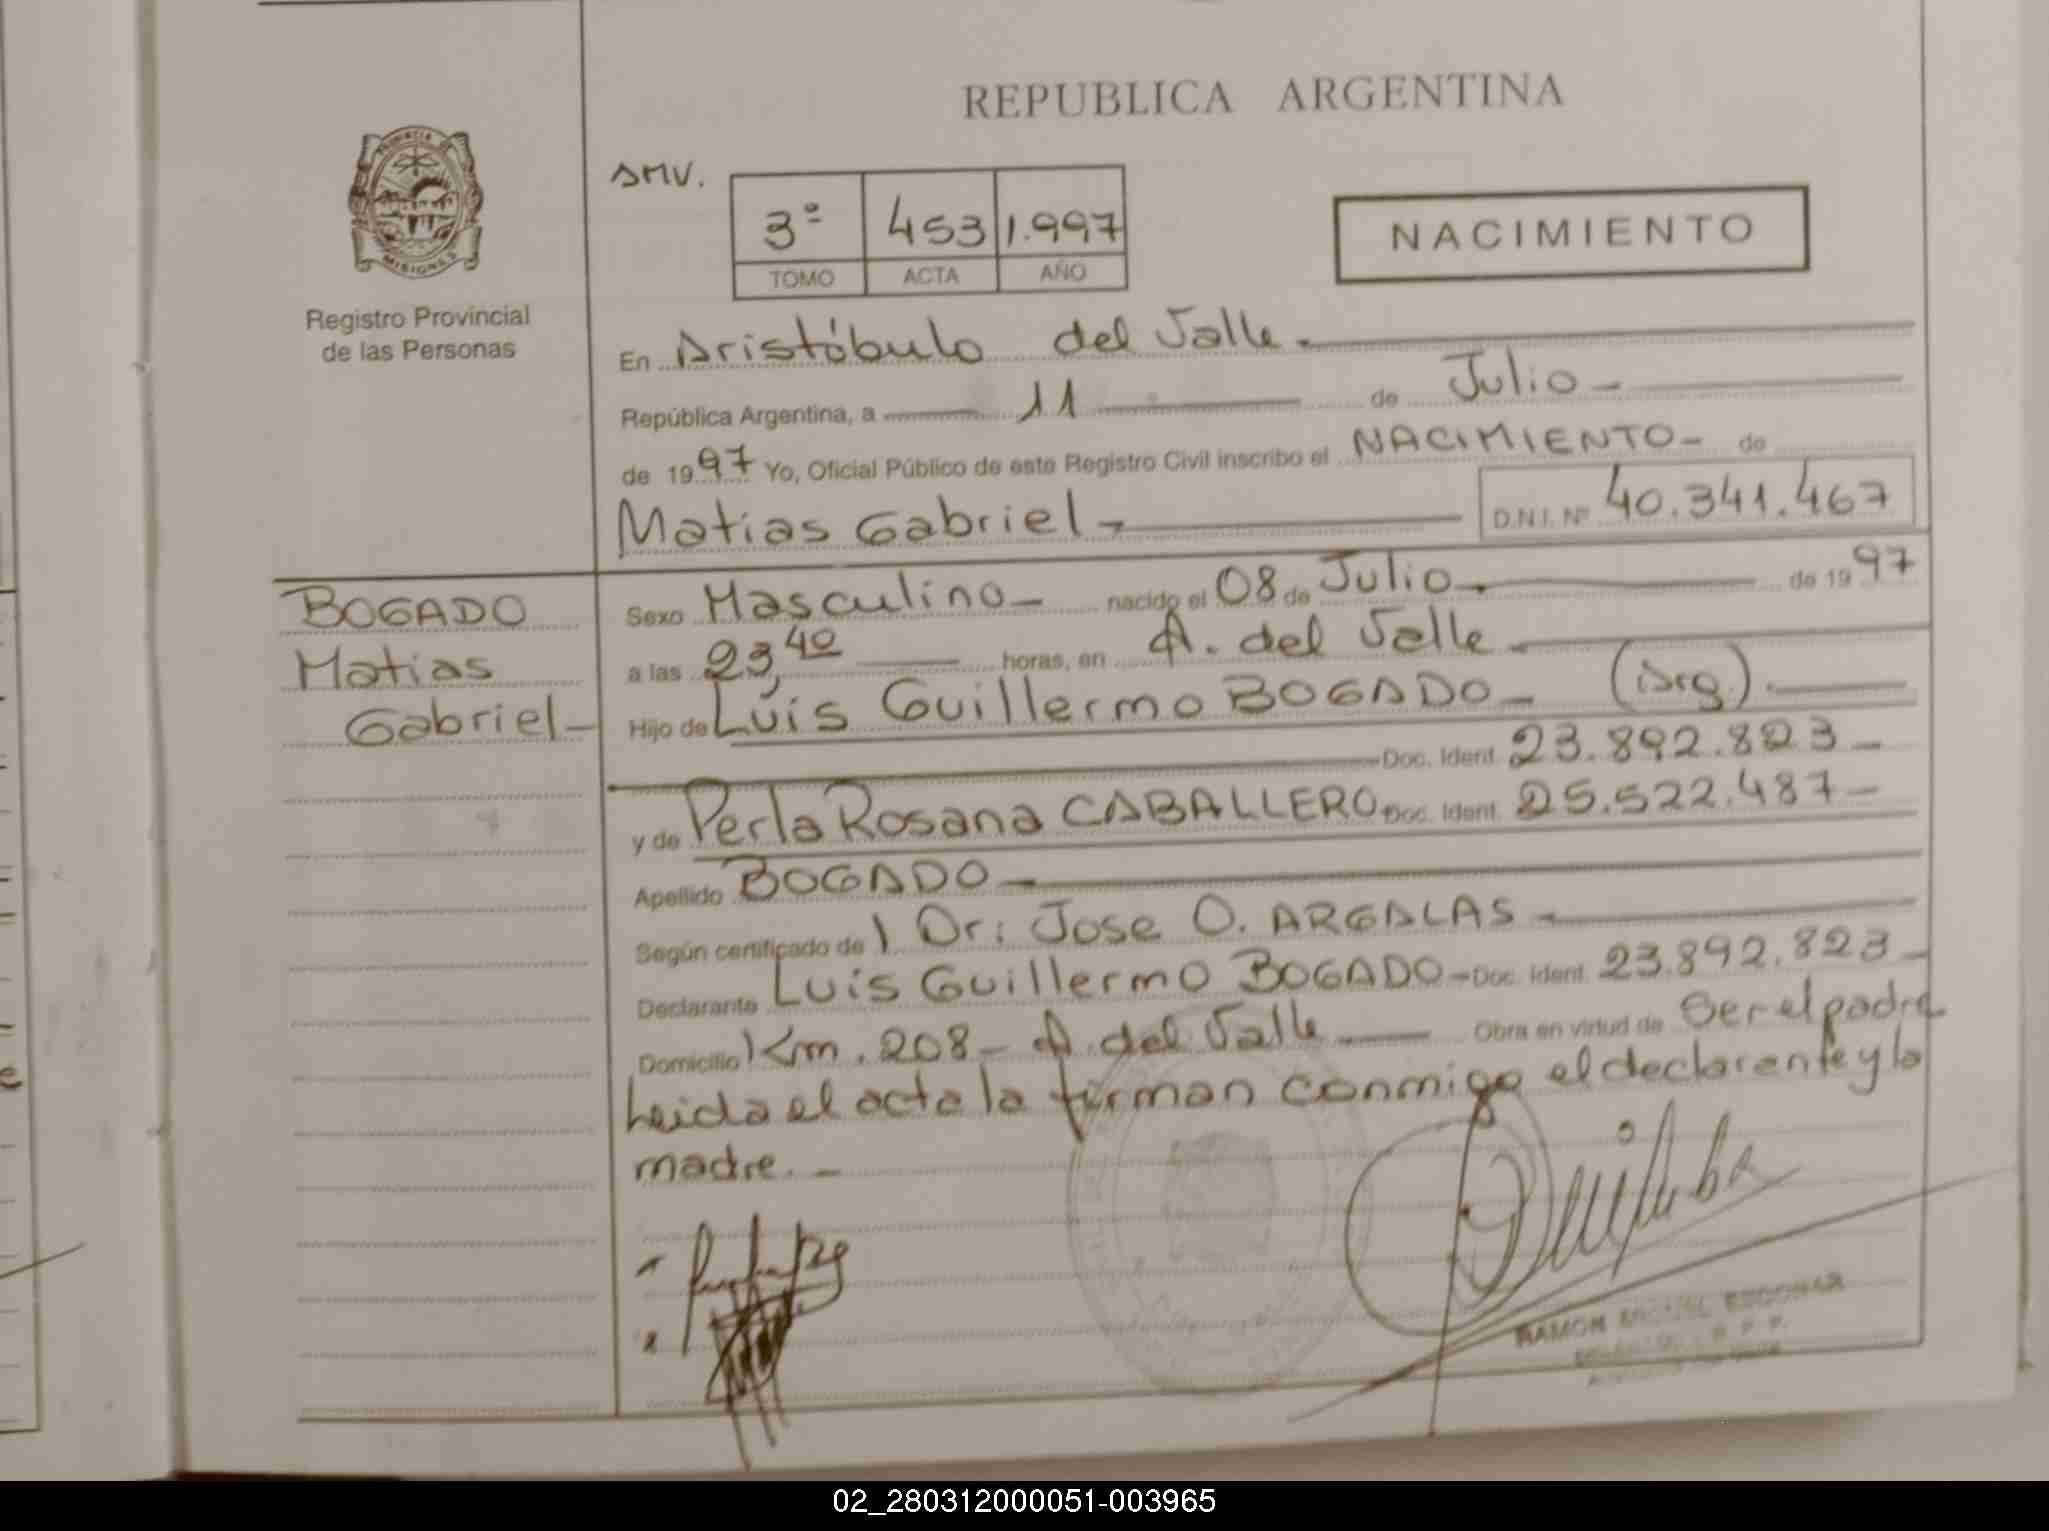 REPUBLICA ARGENTINA
PROVINCIA DE
MISIONES
Registro Provincial
de las Personas
SMV.
3º 453 1.997
TOMO ACTA AÑO
NACIMIENTO
En Aristóbulo del Valle.
República Argentina, a 11 de Julio -
de 1997 Yo, Oficial Público de este Registro Civil inscribo el NACIMIENTO- de
Matias Gabriel - D.N.I. Nº 40.341.467
BOGADO
Matias
Gabriel-
Sexo Masculino- nacido el 08 de Julio- de 1997
a las 23,40 horas, en A. del Valle
Hijo de Luis Guillermo BOGADO- (Arg).
Doc. Ident. 23.892.823-
y de Perla Rosana CABALLERO Doc. Ident. 25.522.487-
Apellido BOGADO-
Según certificado de l Dr: Jose O. ARGALAS-
Declarante Luis Guillermo BOGADO- Doc. Ident. 23.892.823-
Domicilio Km. 208- A. del Valle Obra en virtud de Ser el padre
Leida el acta la firman conmigo el declarante y la
madre. -
RAMON MIGUEL ESCOBAR
02_280312000051-003965